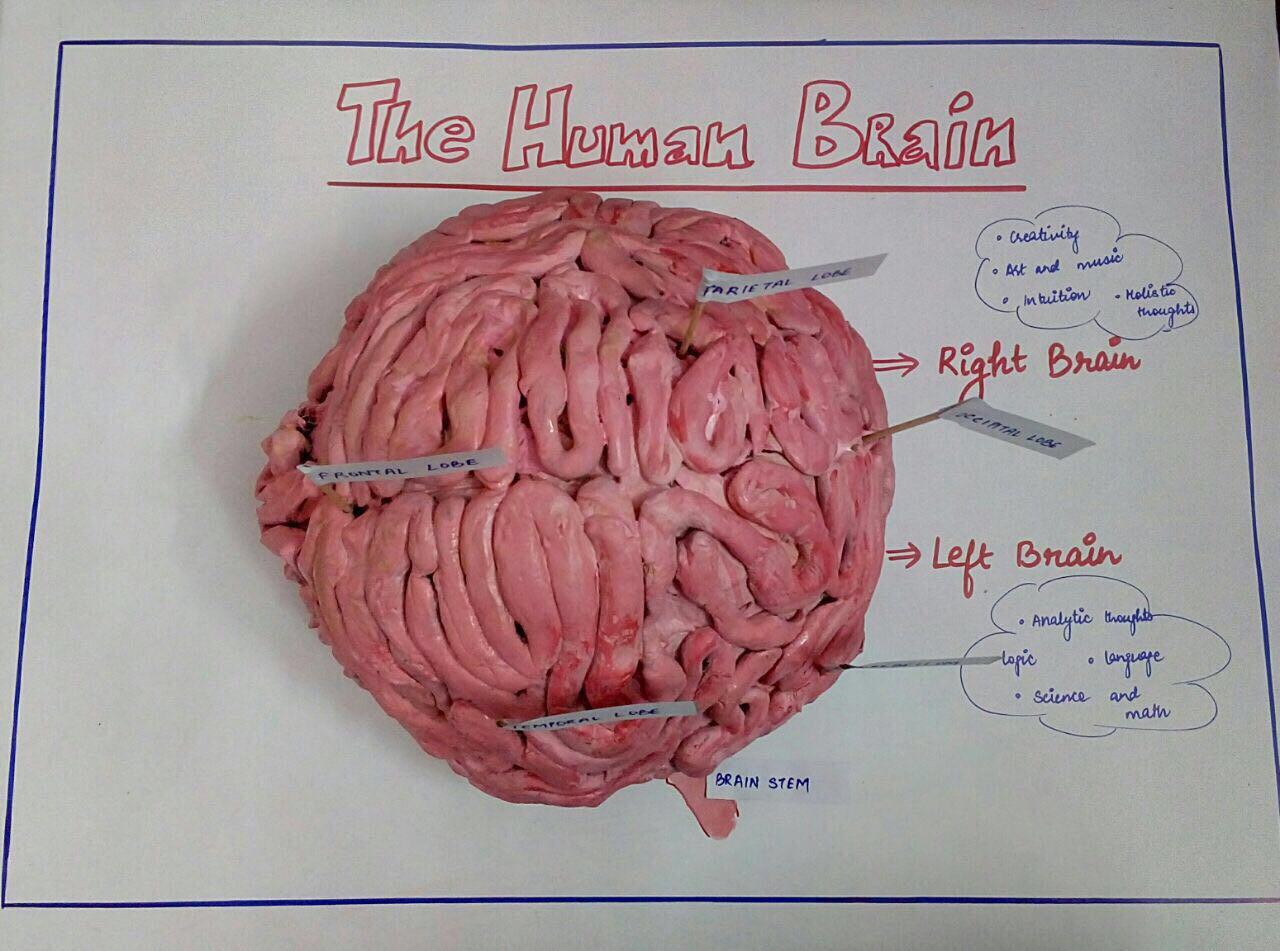 The Human Brain
• Creativity
• Art and music
• Intuition • Holistic
thoughts
PARIETAL LOBE
⇒ Right Brain
OCCIPTAL LOBE
FRONTAL LOBE
⇒ Left Brain
• Analytic thoughts
logic • language
• Science and
math
TEMPORAL LOBE
BRAIN STEM